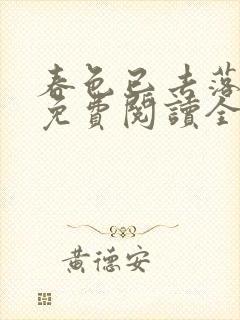 春色已去落
免費閱讀全
黃德安